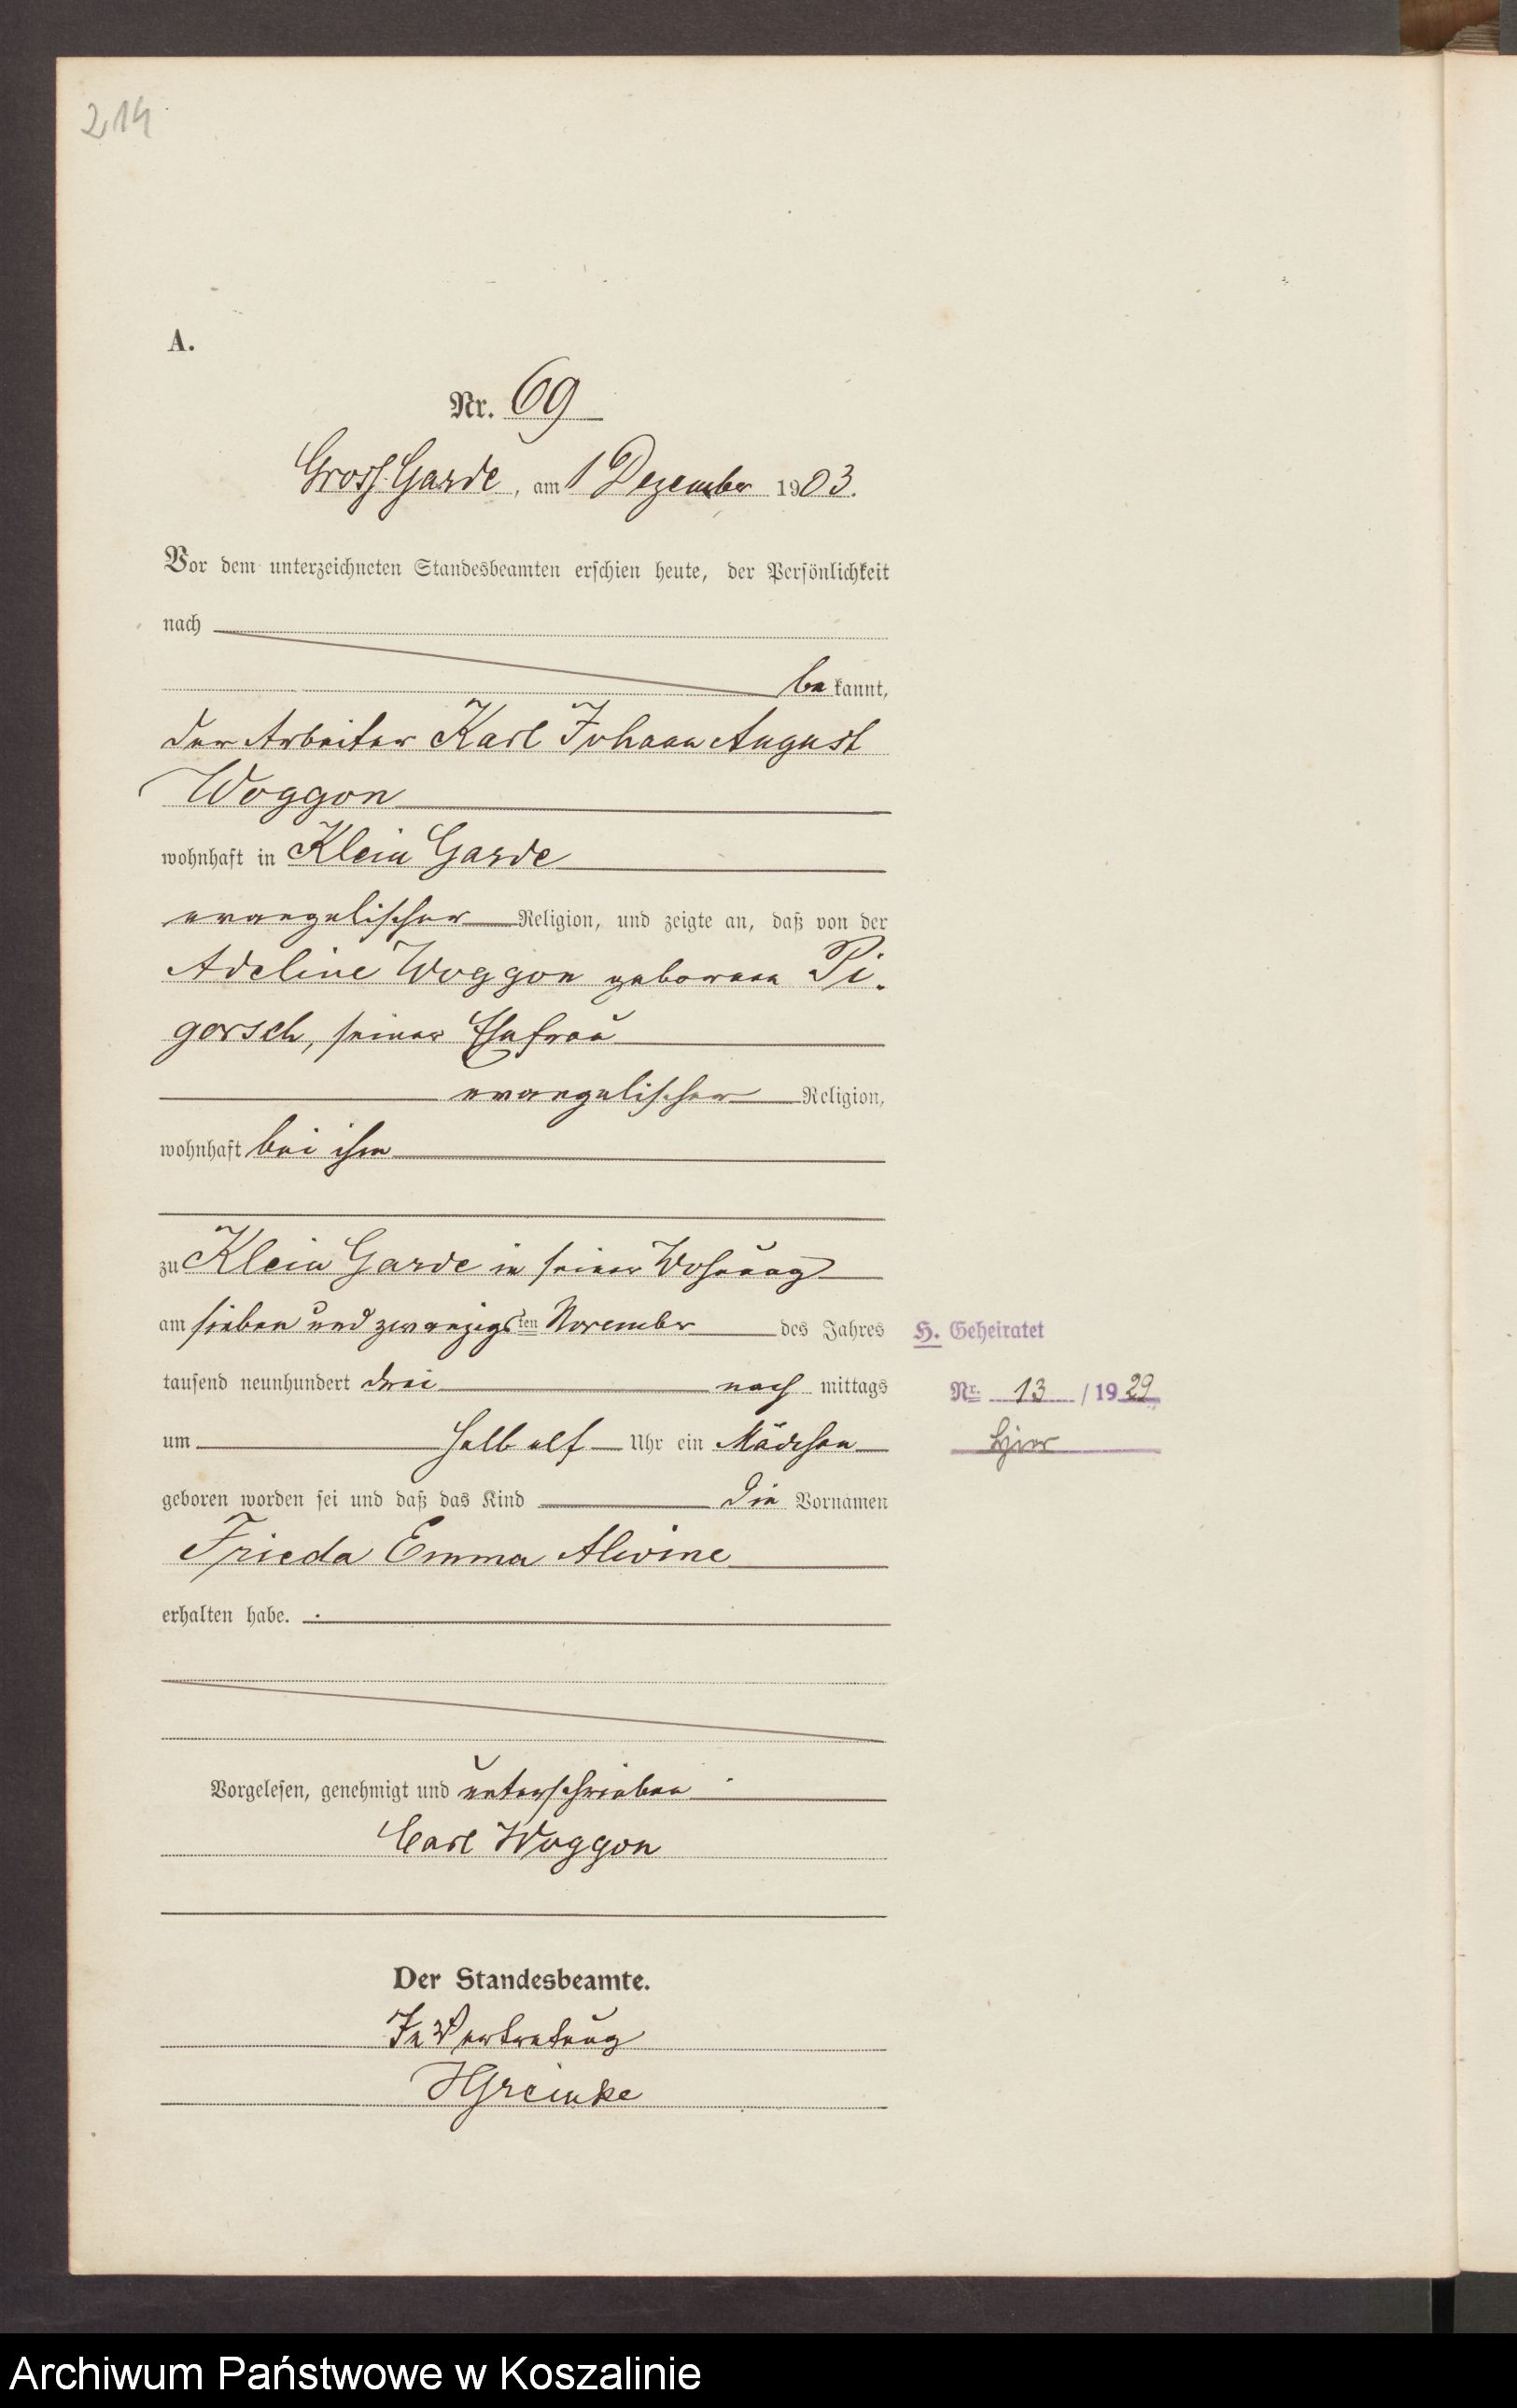 214
A.
Nr. 69
Gross Garde, am 1 Dezember 1903.
Vor dem unterzeichneten Standesbeamten erschien heute, der Persönlichkeit
nach
be kannt,
der Arbeiter Karl Johann August
Woggon
wohnhaft in Klein Garde
evangelischer Religion, und zeigte an, daß von der
Adeline Woggon geborenen Pi-
gorsch, seiner Ehefrau
evangelischer Religion,
wohnhaft bei ihm
zu Klein Garde in seiner Wohnung
am sieben und zwanzigsten November des Jahres
tausend neunhundert drei nach mittags
um halb elf Uhr ein Mädchen
geboren worden sei und daß das Kind die Vornamen
Frieda Emma Alwine
erhalten habe.
Vorgelesen, genehmigt und unterschrieben
Carl Woggon
Der Standesbeamte.
In Vertretung
HGreinke
H. Geheiratet
Nr. 13 / 1929
hier
Archiwum Państwowe w Koszalinie